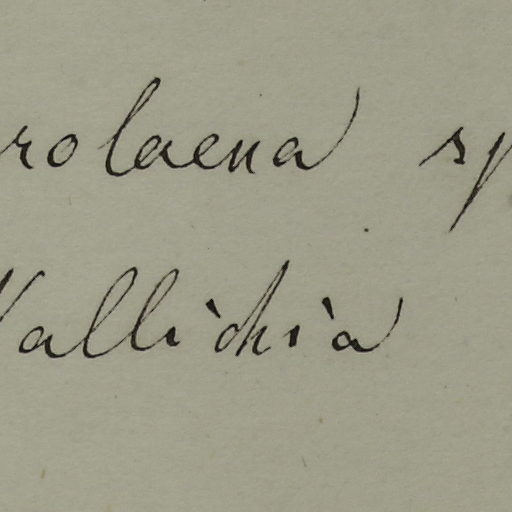 rolaena sp
Wallichia